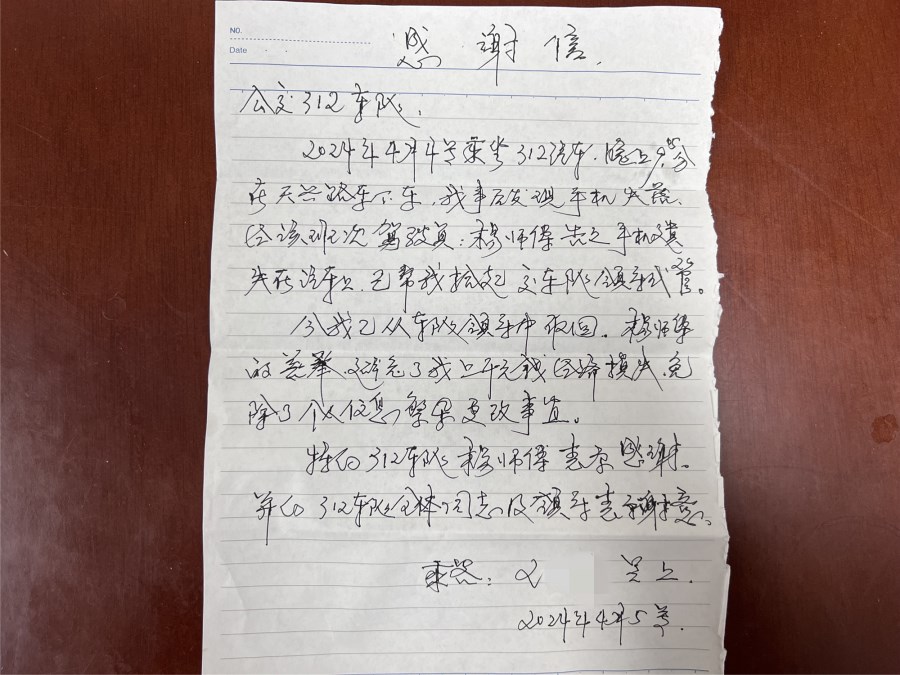 NO.
Date
感谢信.
公交312车队:
2024年4月4号乘坐312汽车.晚上9分
在天兴路车下车,我事后发现手机失落.
经该班次驾驶员:穆师傅告之手机遗
失在汽车上,已帮我拾起交车队领导代管。
今我已从车队领导中取回.穆师傅
的善举,避免了我上千元钱经济损失,免
除了个人信息繁果更改事宜。
特向312车队穆师傅表示感谢.
并向312车队全体同志及领导表示谢意.
乘客: 呈上.
2024年4月5号.